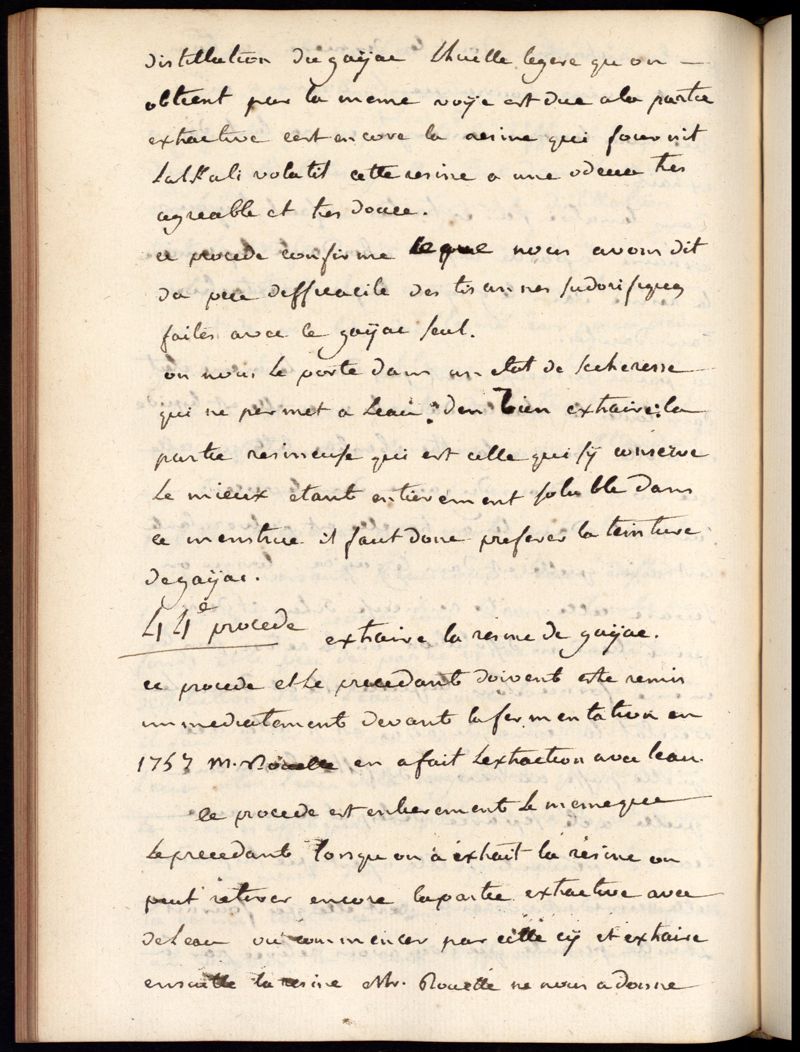 distillation du gaÿac lhuille legere qu on
obtient par la meme voÿe est due a la partie
extractive cest encore la resine qui fournit
Lalkali volatil cette resine a une odeur tres
agreable et tres douce.
ce procede confirme ce que nous avons dit
du peu defficacite des tisannes sudorifiques
faites avec le gaÿac seul.
on nous Le porte dans un etat de secheresse
qui ne permet a Leau d'en bien extraire la
partie resineuse qui est celle qui sÿ conserve
Le mieux etant entierement soluble dans
ce menstrue il faut donc preferer la teinture
de gaÿac.
44e procede extraire la resine de gaÿac.
ce procede et Le precedant doivent estre remis
immediatement devant la fermentation en
1757 M. Rouelle en a fait Lextraction avec leau.
ce procede est entierement Le meme que
Le precedant lorsqu on a extrait la resine on
peut retirer encore la partie extractive avec
de Leau ou commencer par celle cÿ et extraire
ensuitte la resine Mr. Rouelle ne nous a donné